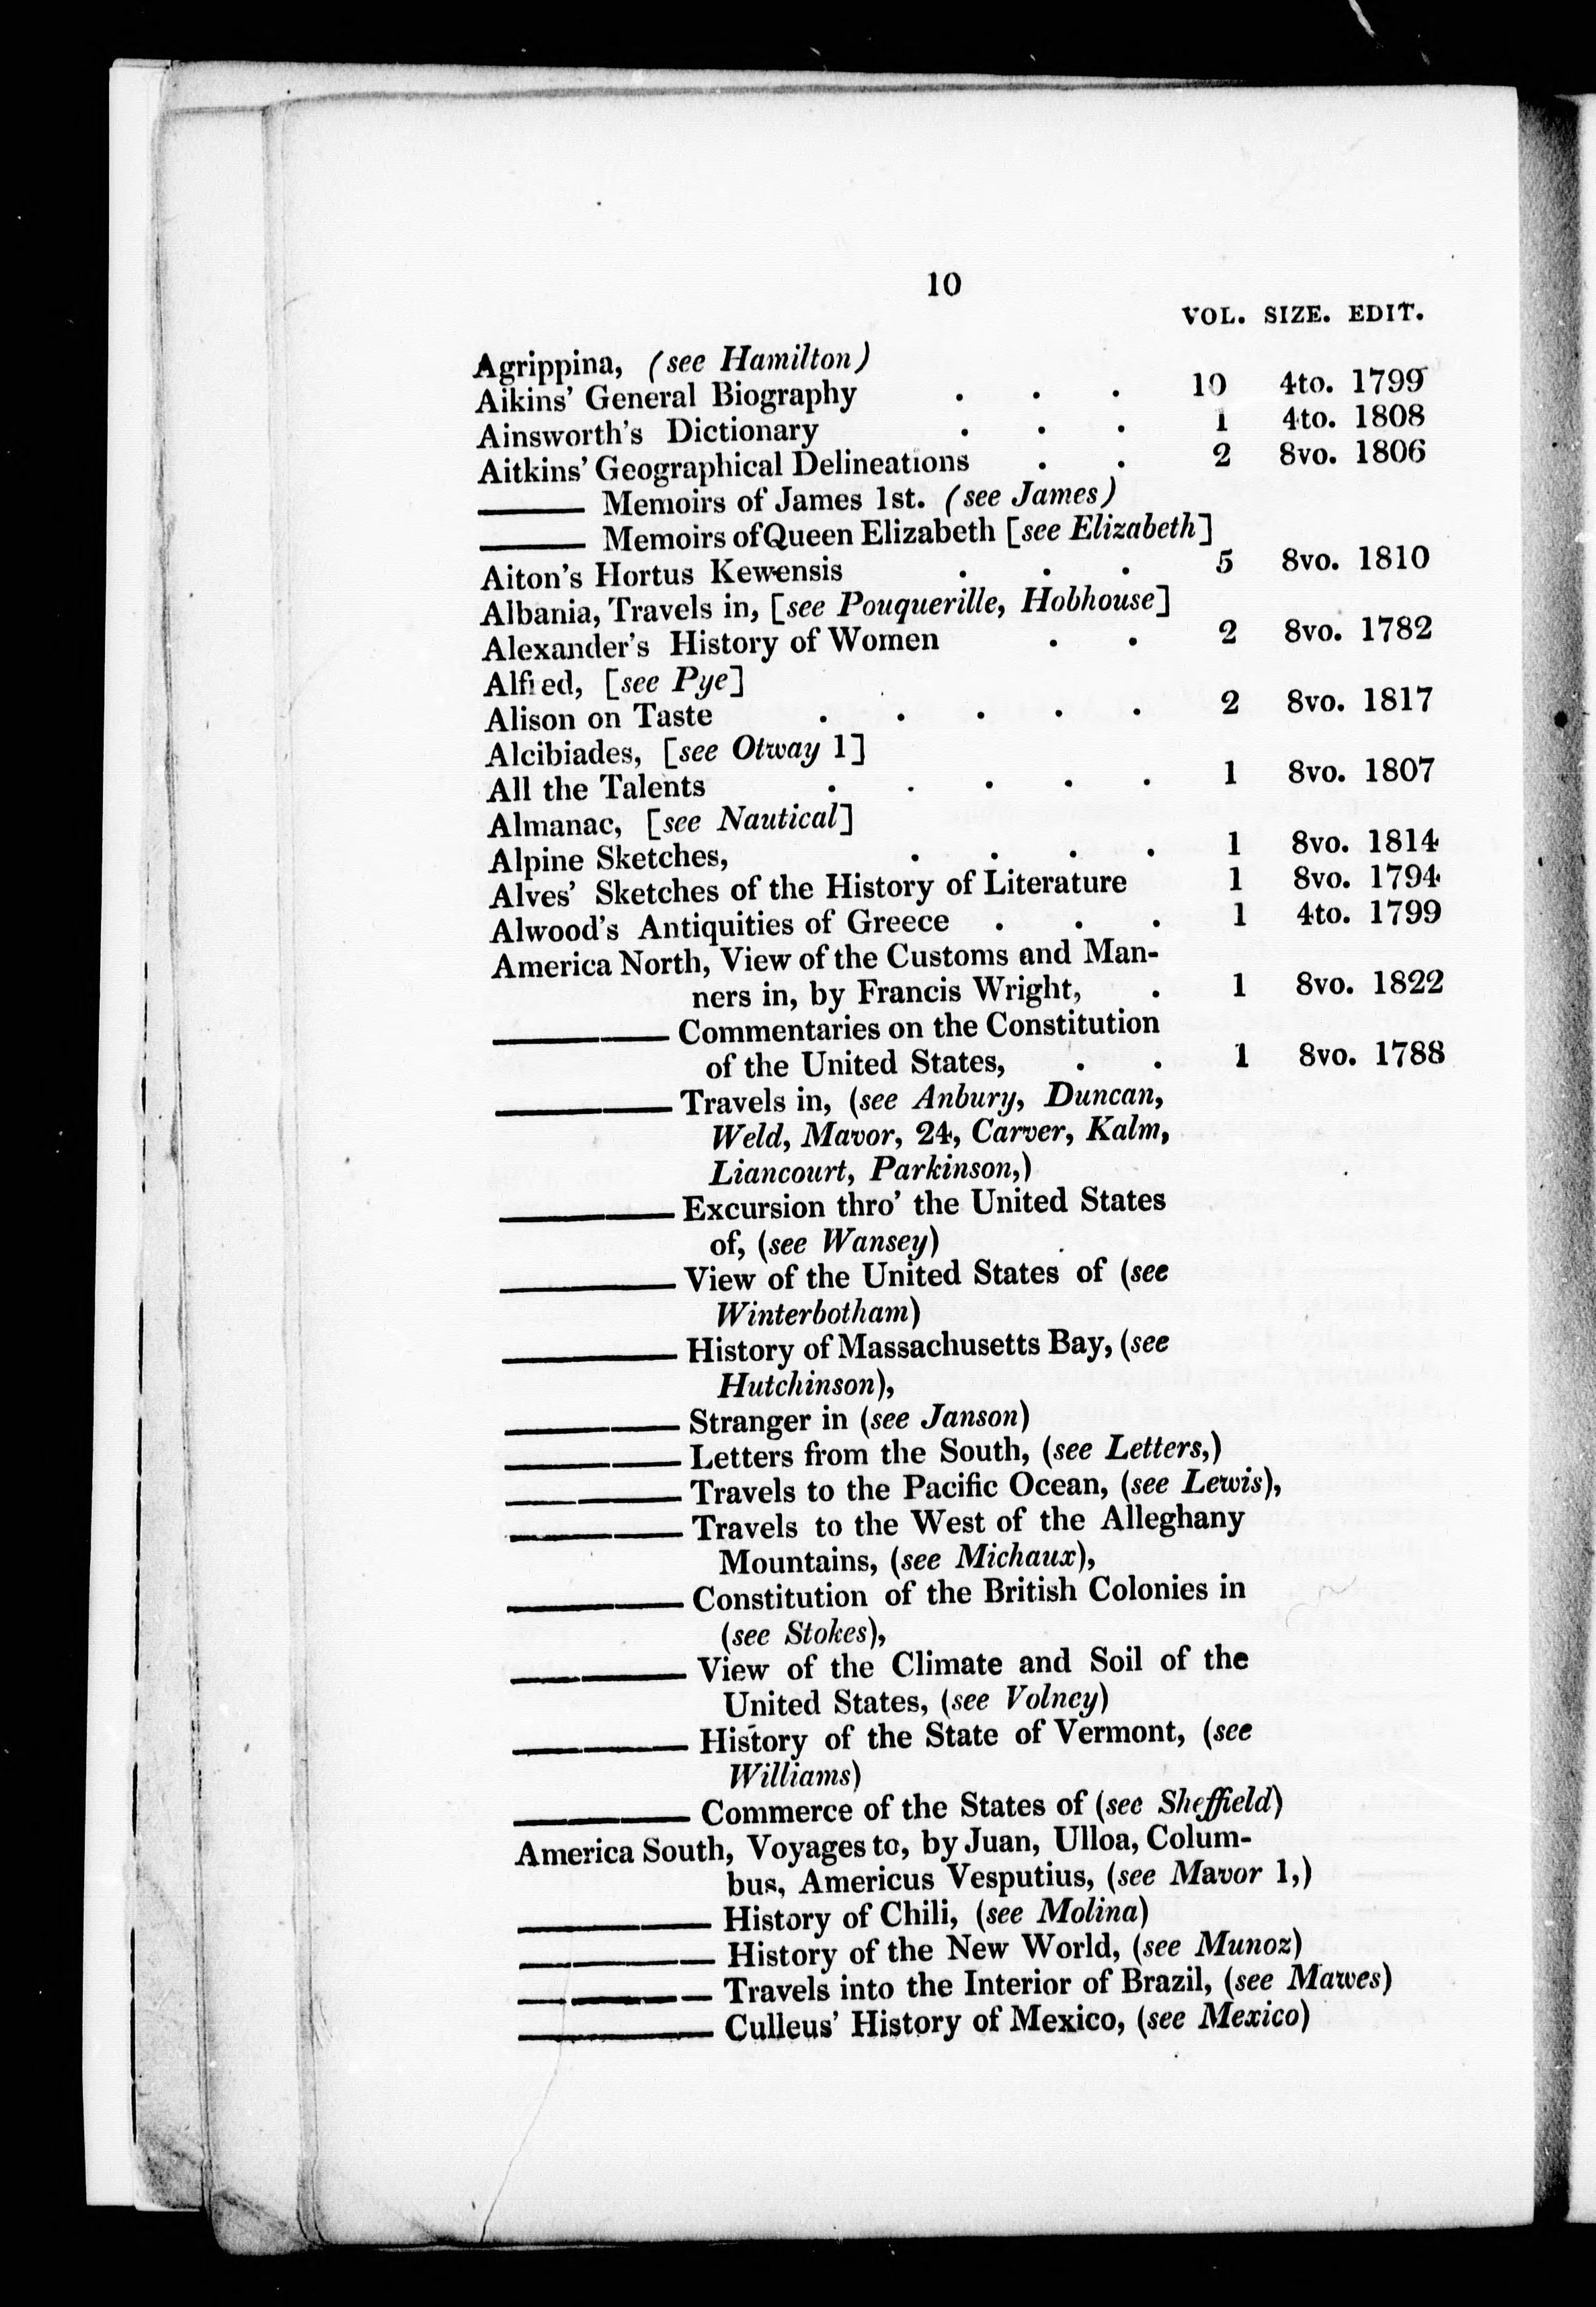 10
VOL. SIZE. EDIT.
Agrippina, (see Hamilton)
Aikins' General Biography . . . 10 4to. 1799
Ainsworth's Dictionary . . . 1 4to. 1808
Aitkins' Geographical Delineations . . 2 8vo. 1806
——— Memoirs of James 1st. (see James)
——— Memoirs of Queen Elizabeth [see Elizabeth]
Aiton's Hortus Kewensis . . . 5 8vo. 1810
Albania, Travels in, [see Pouquerille, Hobhouse]
Alexander's History of Women . . 2 8vo. 1782
Alfred, [see Pye]
Alison on Taste . . . . . 2 8vo. 1817
Alcibiades, [see Otway 1]
All the Talents . . . . . 1 8vo. 1807
Almanac, [see Nautical]
Alpine Sketches, . . . . 1 8vo. 1814
Alves' Sketches of the History of Literature 1 8vo. 1794
Alwood's Antiquities of Greece . . . 1 4to. 1799
America North, View of the Customs and Man-
ners in, by Francis Wright, . 1 8vo. 1822
————— Commentaries on the Constitution
of the United States, . . 1 8vo. 1788
————— Travels in, (see Anbury, Duncan,
Weld, Mavor, 24, Carver, Kalm,
Liancourt, Parkinson,)
————— Excursion thro' the United States
of, (see Wansey)
————— View of the United States of (see
Winterbotham)
————— History of Massachusetts Bay, (see
Hutchinson),
————— Stranger in (see Janson)
————— Letters from the South, (see Letters,)
————— Travels to the Pacific Ocean, (see Lewis),
————— Travels to the West of the Alleghany
Mountains, (see Michaux),
————— Constitution of the British Colonies in
(see Stokes),
————— View of the Climate and Soil of the
United States, (see Volney)
————— History of the State of Vermont, (see
Williams)
————— Commerce of the States of (see Sheffield)
America South, Voyages to, by Juan, Ulloa, Colum-
bus, Americus Vesputius, (see Mavor 1,)
————— History of Chili, (see Molina)
————— History of the New World, (see Munoz)
————— Travels into the Interior of Brazil, (see Mawes)
————— Culleus' History of Mexico, (see Mexico)